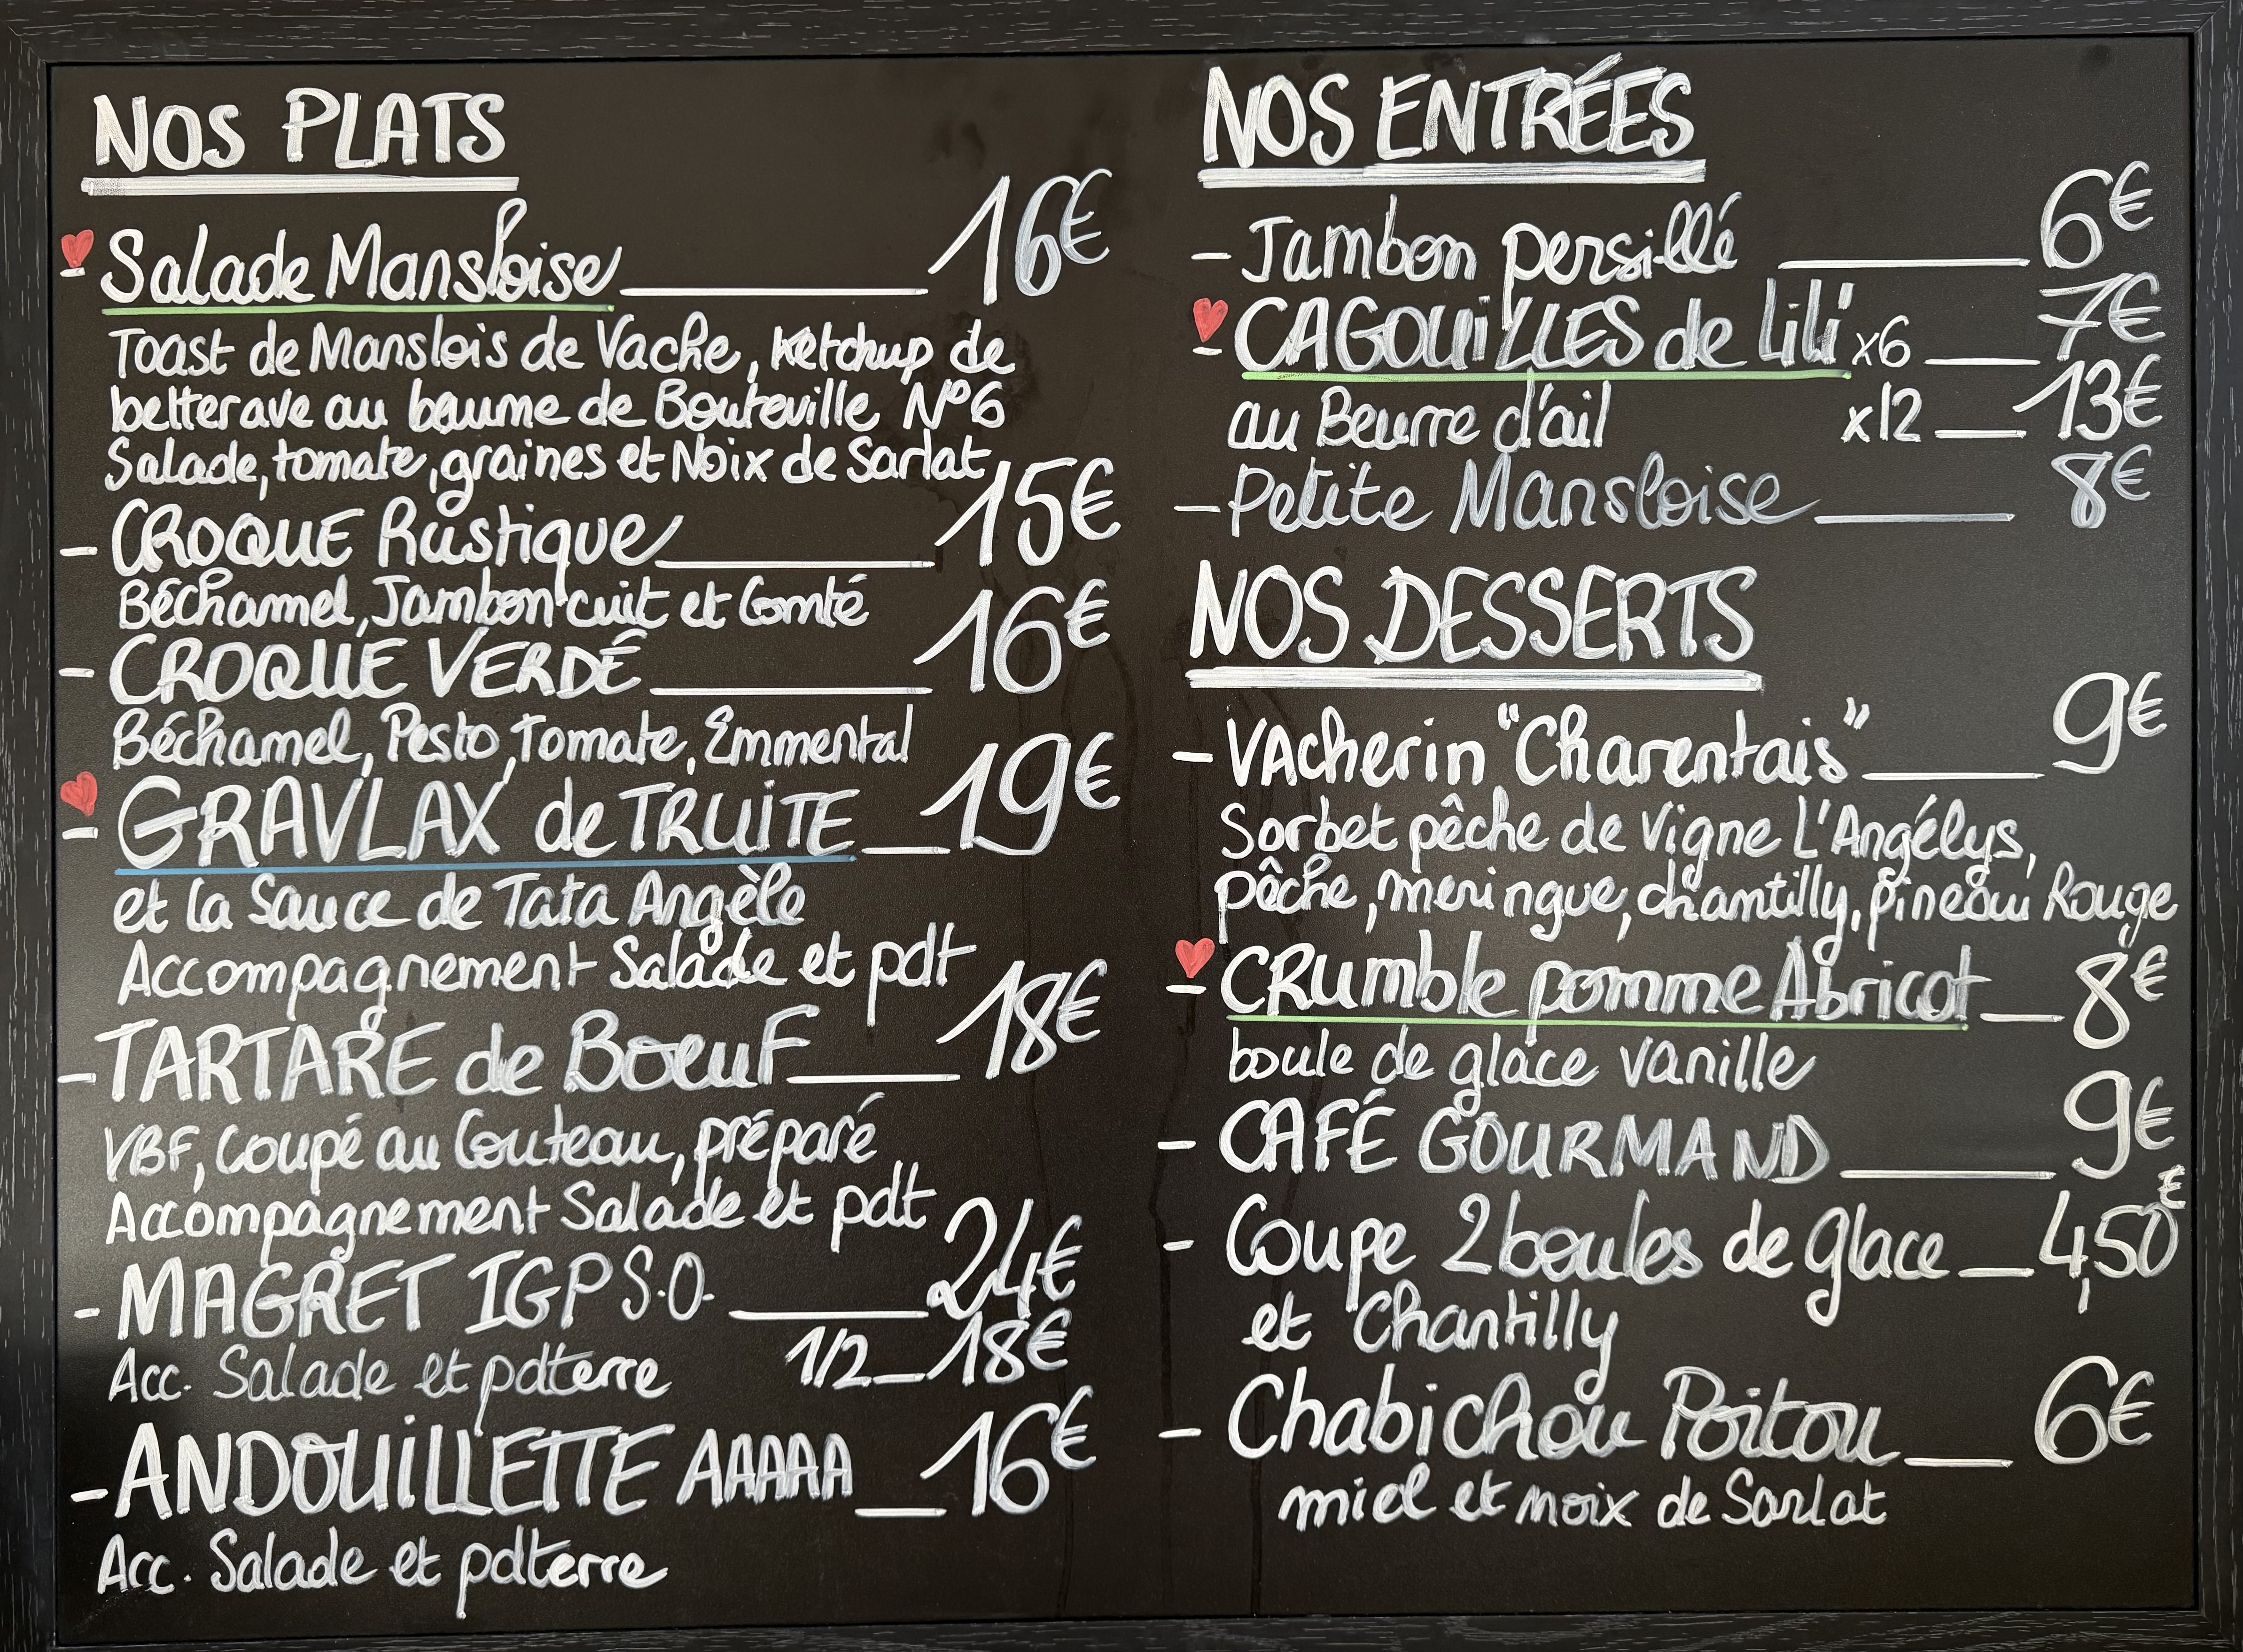 NOS PLATS
- Salade Mansloise 16€
Toast de Manslois de Vache, Ketchup de
betterave au baume de Bouteville N°6
Salade, tomate, graines et Noix de Sarlat
- CROQUE Rustique 15€
Béchamel, Jambon cuit et Comté
- CROQUE VERDÉ 16€
Béchamel, Pesto, Tomate, Emmental
- GRAVLAX de TRUITE 19€
et la Sauce de Tata Angèle
Accompagnement Salade et pdt
- TARTARE de BOEUF 18€
VBF, Coupé au Couteau, préparé
Accompagnement Salade et pdt
- MAGRET IGP S.O. 24€
1/2 18€
Acc. Salade et pdterre
- ANDOUILLETTE AAAAA 16€
Acc. Salade et pdterre
NOS ENTRÉES
- Jambon persillé 6€
- CAGOUILLES de Lili x6 7€
au Beurre d'ail x12 13€
- Petite Mansloise 8€
NOS DESSERTS
- VAcherin "Charentais" 9€
Sorbet pêche de Vigne L'Angélys,
pêche, meringue, chantilly, pineau Rouge
- CRumble pomme Abricot 8€
boule de glace vanille
- CAFÉ GOURMAND 9€
- Coupe 2 boules de glace 4,50€
et Chantilly
- Chabichou Poitou 6€
miel et noix de Sarlat